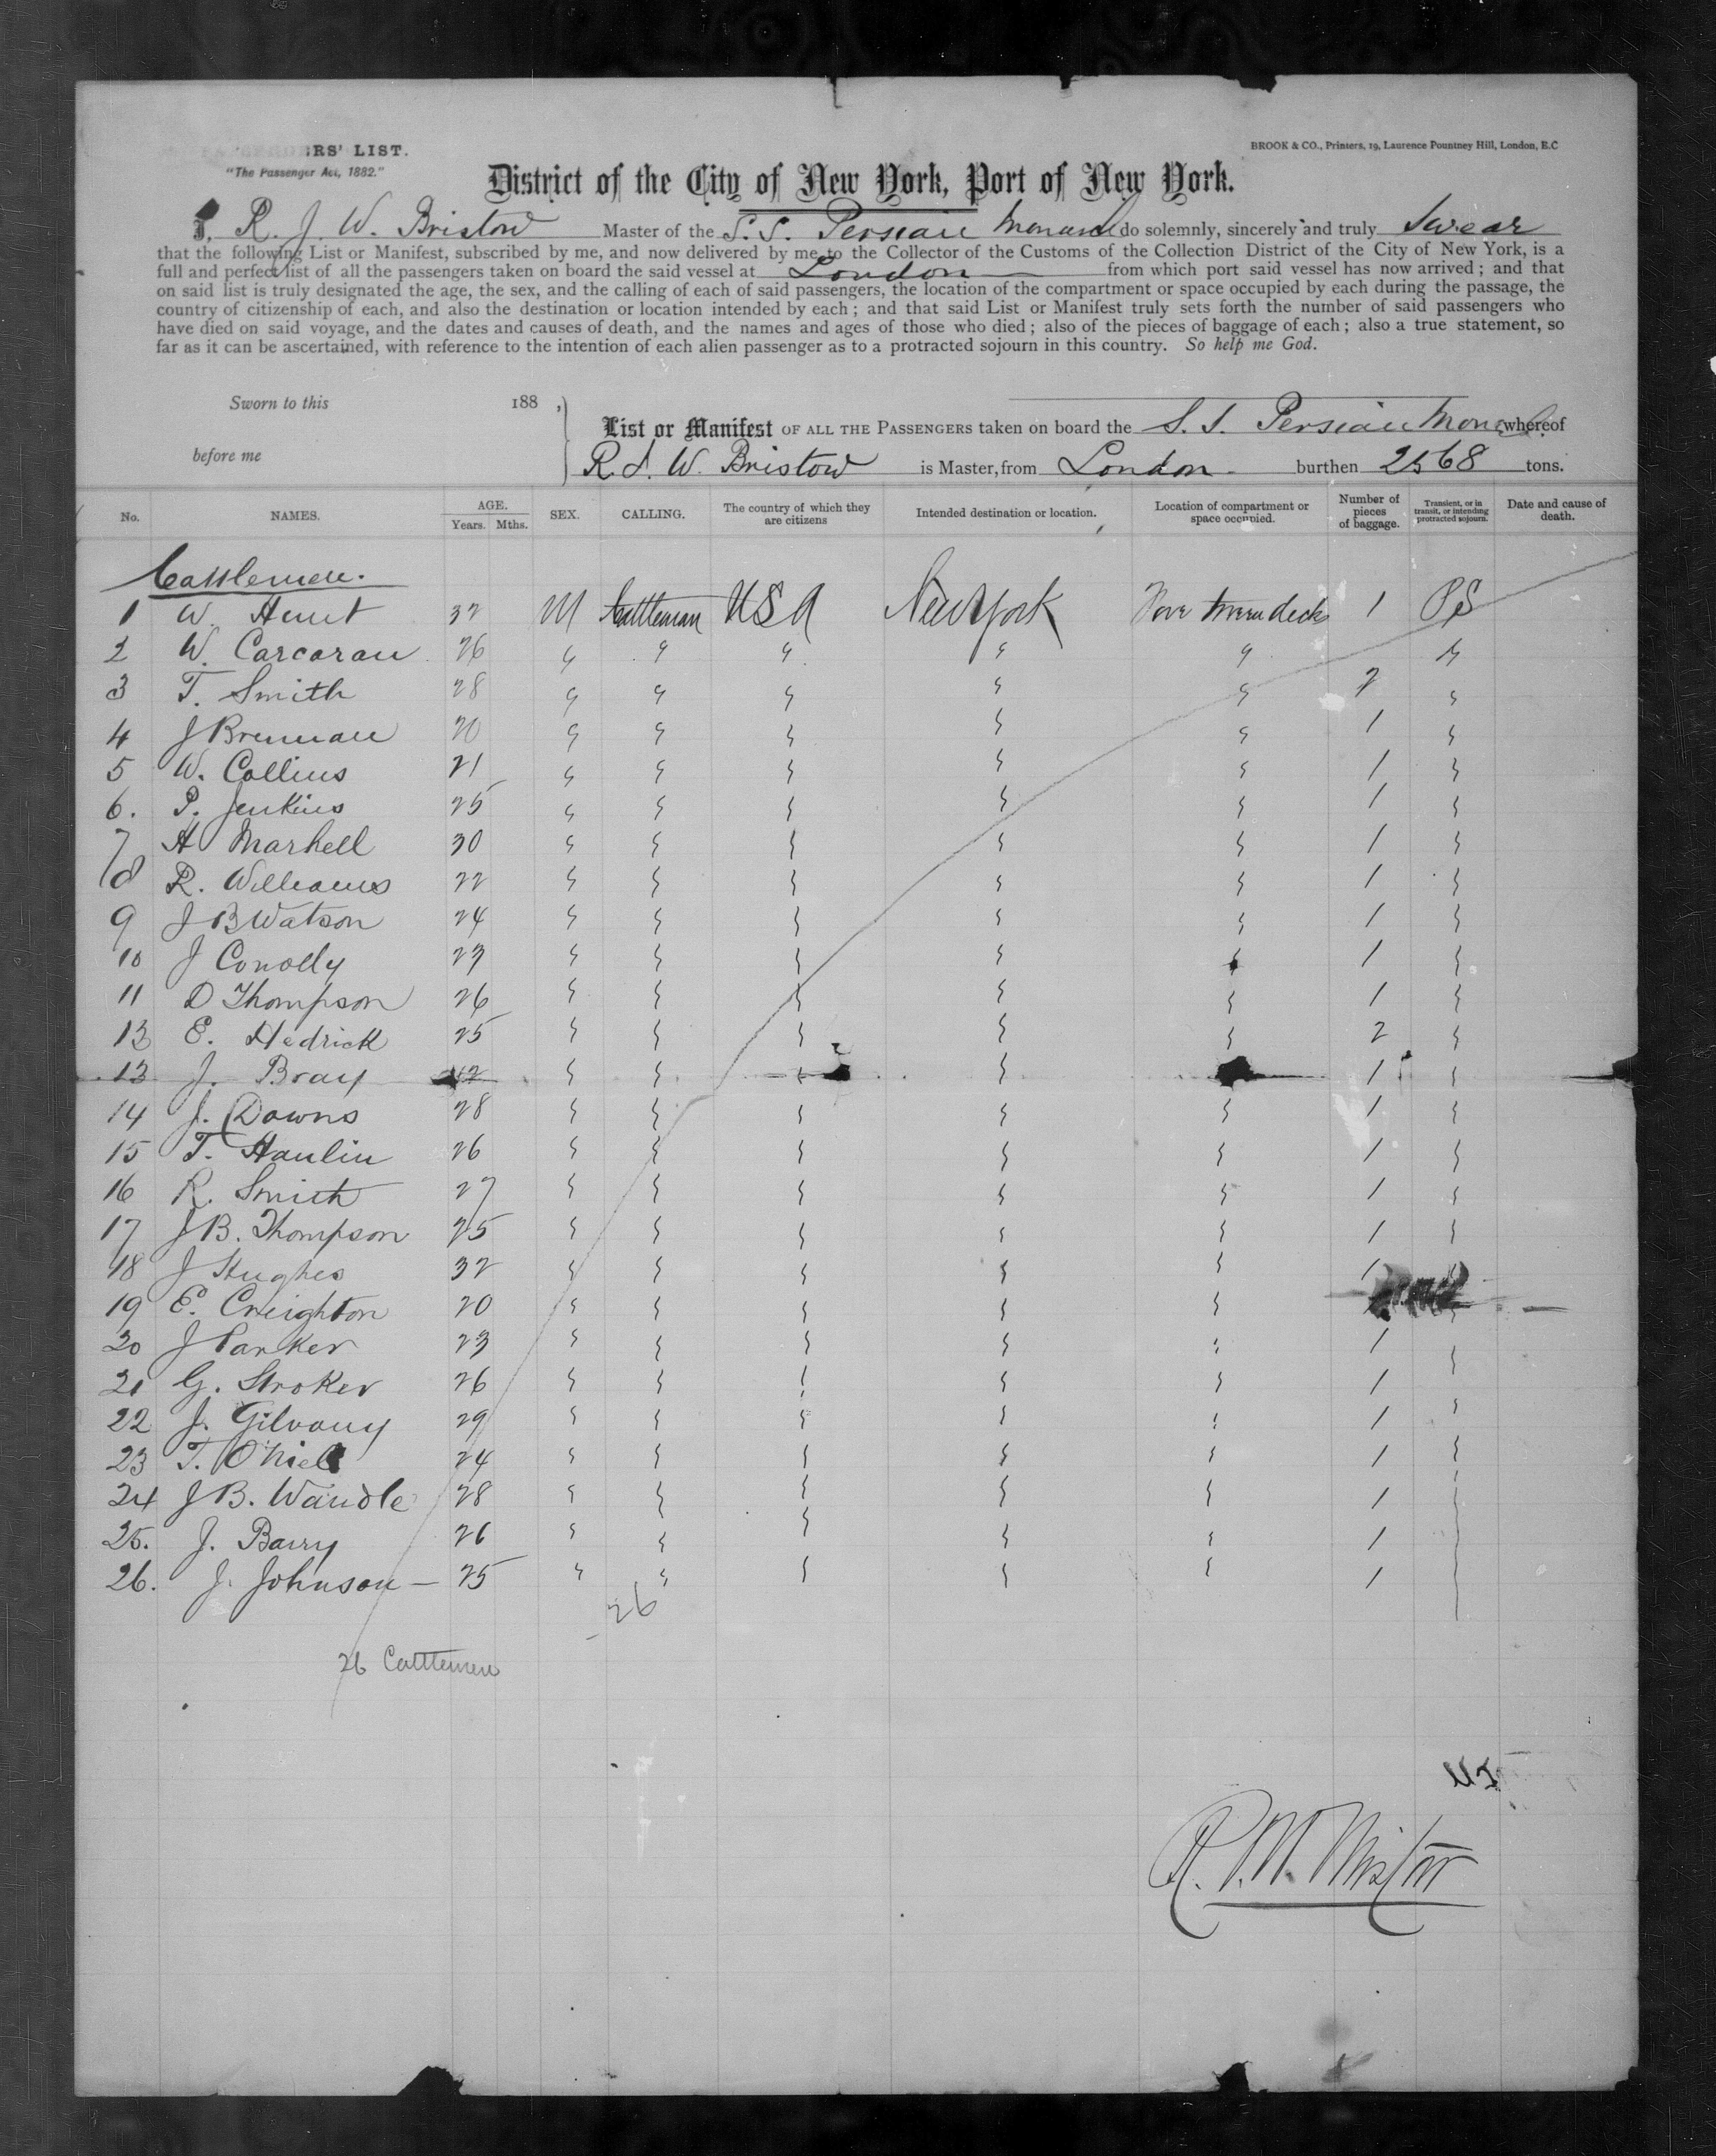 ERS' LIST.
BROOK & CO., Printers, 19, Laurence Pountney Hill, London, E.C
"The Passenger Act, 1882."
District of the City of New York, Port of New York.
I, R. J. W. Bristow Master of the S.S. Persian Monarch do solemnly, sincerely and truly Swear
that the following List or Manifest, subscribed by me, and now delivered by me to the Collector of the Customs of the Collection District of the City of New York, is a
full and perfect list of all the passengers taken on board the said vessel at London from which port said vessel has now arrived; and that
on said list is truly designated the age, the sex, and the calling of each of said passengers, the location of the compartment or space occupied by each during the passage, the
country of citizenship of each, and also the destination or location intended by each; and that said List or Manifest truly sets forth the number of said passengers who
have died on said voyage, and the dates and causes of death, and the names and ages of those who died; also of the pieces of baggage of each; also a true statement, so
far as it can be ascertained, with reference to the intention of each alien passenger as to a protracted sojourn in this country. So help me God.
Sworn to this 188 ,
List or Manifest OF ALL THE PASSENGERS taken on board the S. S. Persian Monarch whereof
before me
R. J. W. Bristow is Master, from London burthen 2568 tons.
No. NAMES. AGE. Years. Mths. SEX. CALLING. The country of which they are citizens Intended destination or location. Location of compartment or space occupied. Number of pieces of baggage. Transient, or in transit, or intending protracted sojourn. Date and cause of death.
Cattlemen.
1 W. Hunt 32 M Cattleman USA New York 1 PS
2 W. Carcoran 26 " " " " " "
3 T. Smith 28 " " " " " 2 "
4 J Brennan 20 " " " " " 1 "
5 W. Collins 21 " " " " " 1 "
6. P. Jenkins 25 " " " " " 1 "
7 H Marhell 30 " " " " " 1 "
8 R. Williams 22 " " " " " 1 "
9 J B Watson 24 " " " " " 1 "
10 J Conolly 23 " " " " " 1 "
11 D Thompson 26 " " " " " 1 "
13 E. Hedrick 25 " " " " " 2 "
13 J. Bray 42 " " " " 1 "
14 J. Downs 28 " " " " " 1 "
15 T. Hanlin 26 " " " " " 1 "
16 R. Smith 27 " " " " " 1 "
17 J B. Thompson 25 " " " " " 1 "
18 J Hughes 32 " " " " " 1
19 E. Creighton 20 " " " " " "
20 J Parker 23 " " " " " 1 "
21 G. Stroker 26 " " " " " 1
22 J. Gilvany 29 " " " " " 1 "
23 T. O'Niel 24 " " " " " 1 "
24 J B. Wandle 28 " " " " " 1 "
25. J. Barry 26 " " " " " 1 "
26. J. Johnson — 25 " " " " " 1 "
26
26 Cattlemen